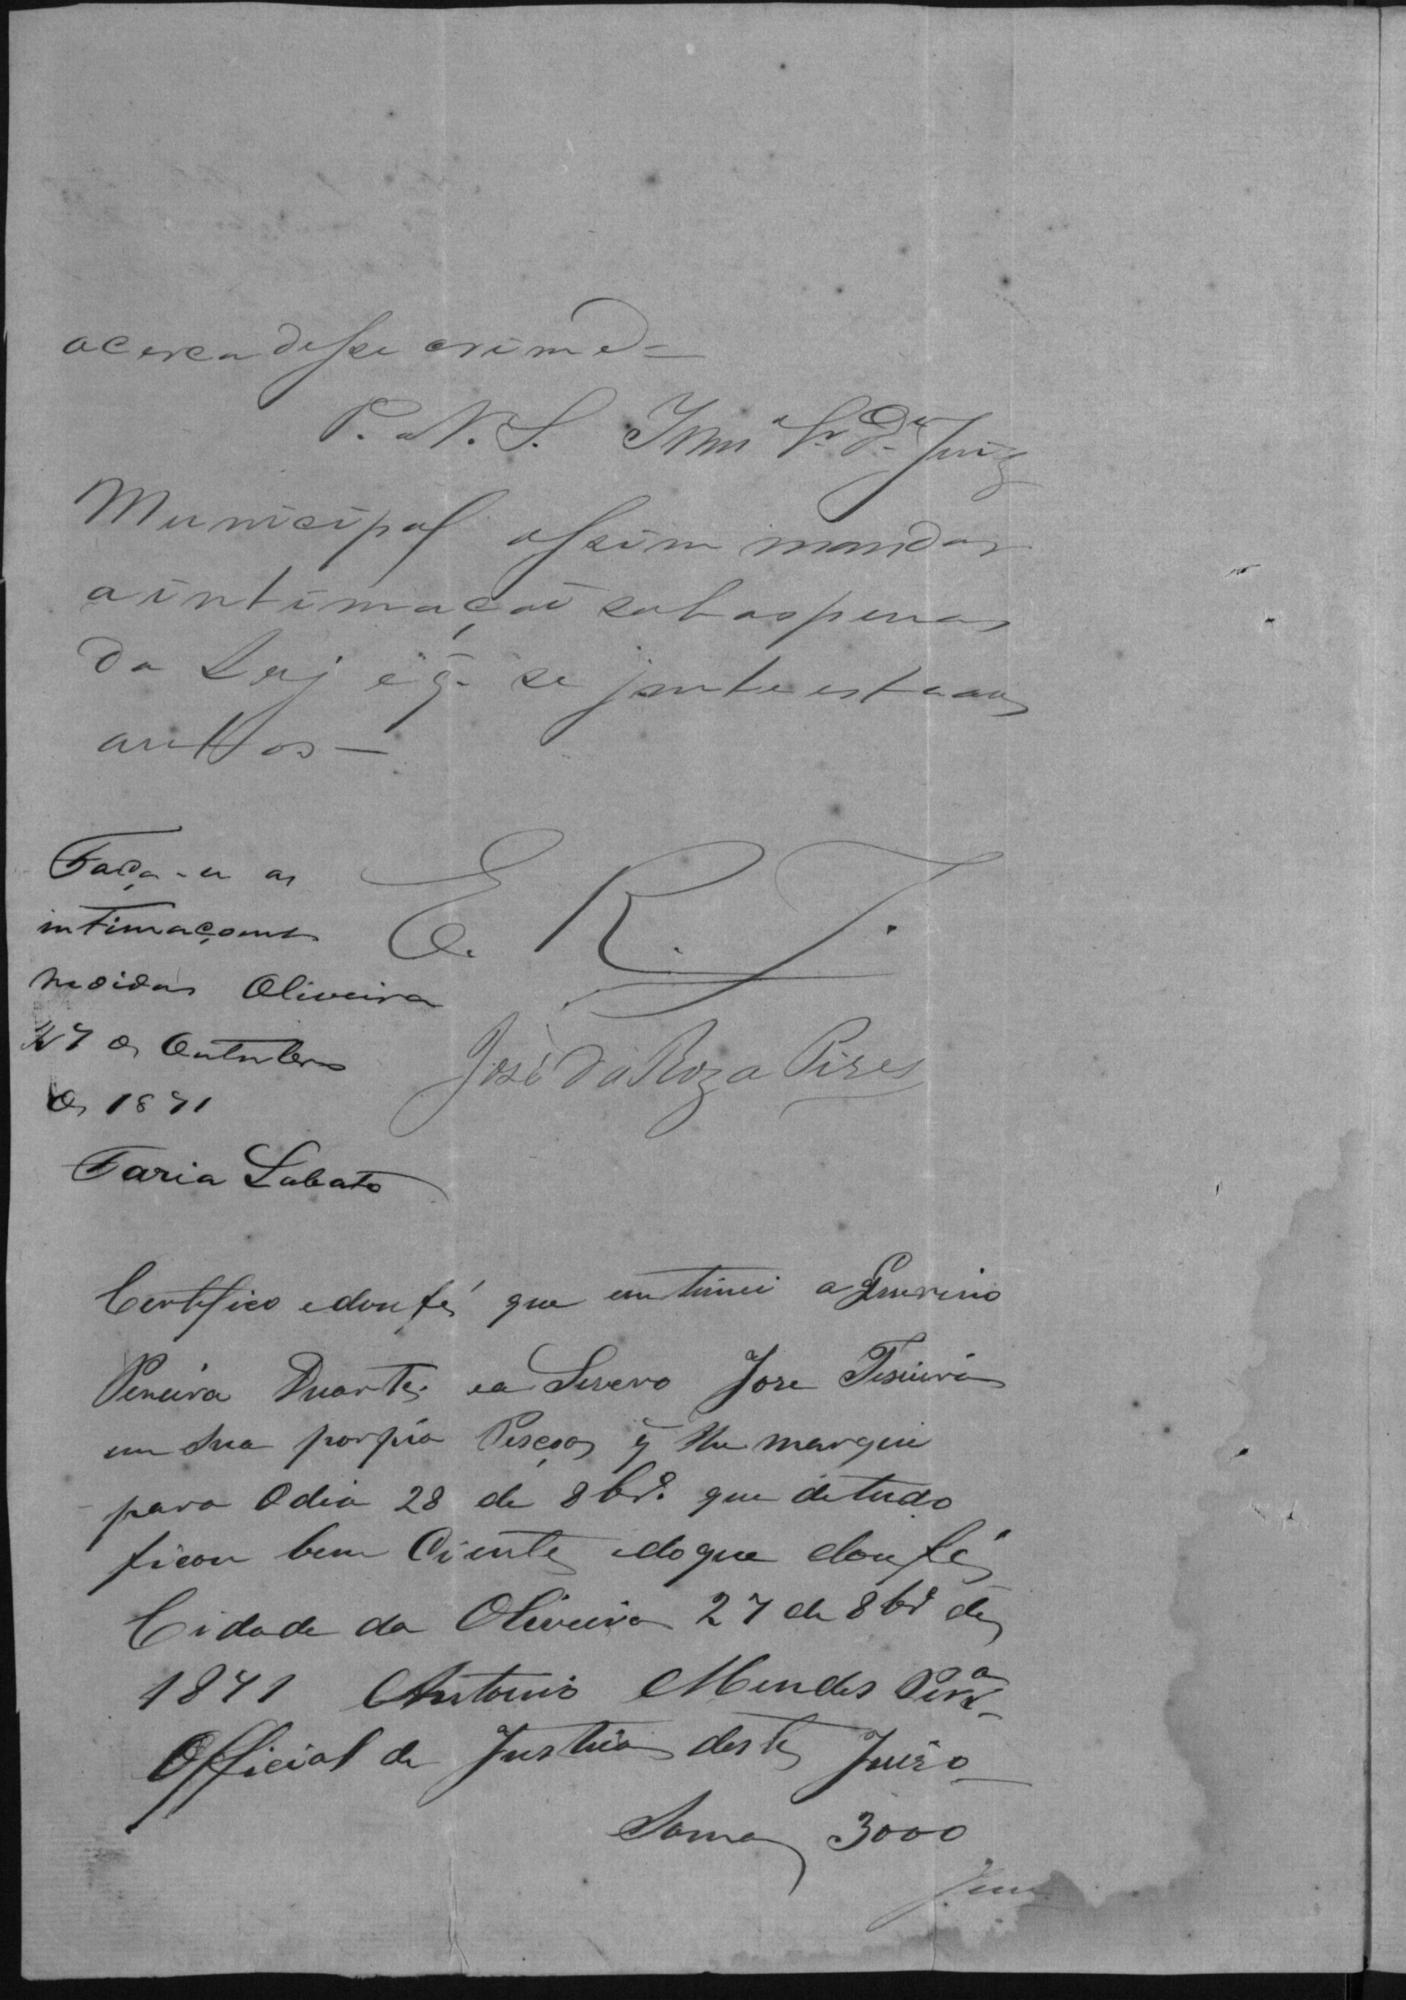 acerca desse crime =
P. a V. S. Illmº Sr. Dr. Juiz
Municipal assim mandar
a intimação sob as penas
da Lej e q̃ se junte esta aos
auttos —
E. R. J.
José da Roza Pires
Faça-se as
intimaçoens
pedidas Oliveira
27 de Outubro
de 1871
Faria Lobato
Certifico e dou fé que entimei a
Pereira Duarte, e a Severo Jose Teixeira
em sua porpia Pesçoa, q̃ lhe marquei
para o dia 28 de 8brº. que de tudo
ficou bem Ciente, e do que dou fé,
Cidade da Oliveira 27 de 8brº de
1871 Antonio Mendes Perª
Official de Justiça deste Juizo
Soma 3000